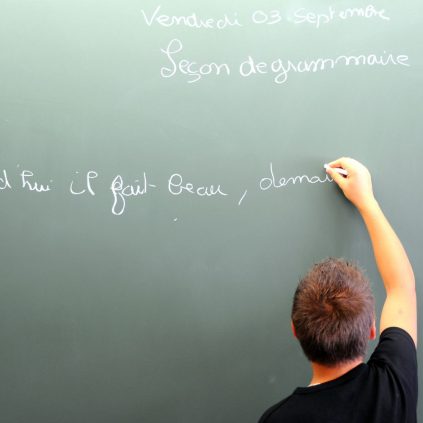 Vendredi 03 Septembre
Leçon de grammaire
d'hui il fait beau, demai